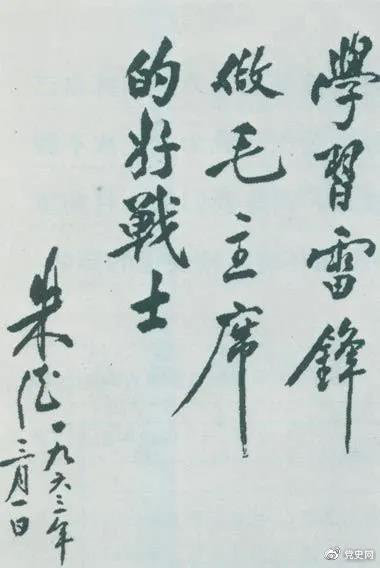 學習雷鋒
做毛主席
的好戰士
朱德
一九六三年
三月一日
@党史网